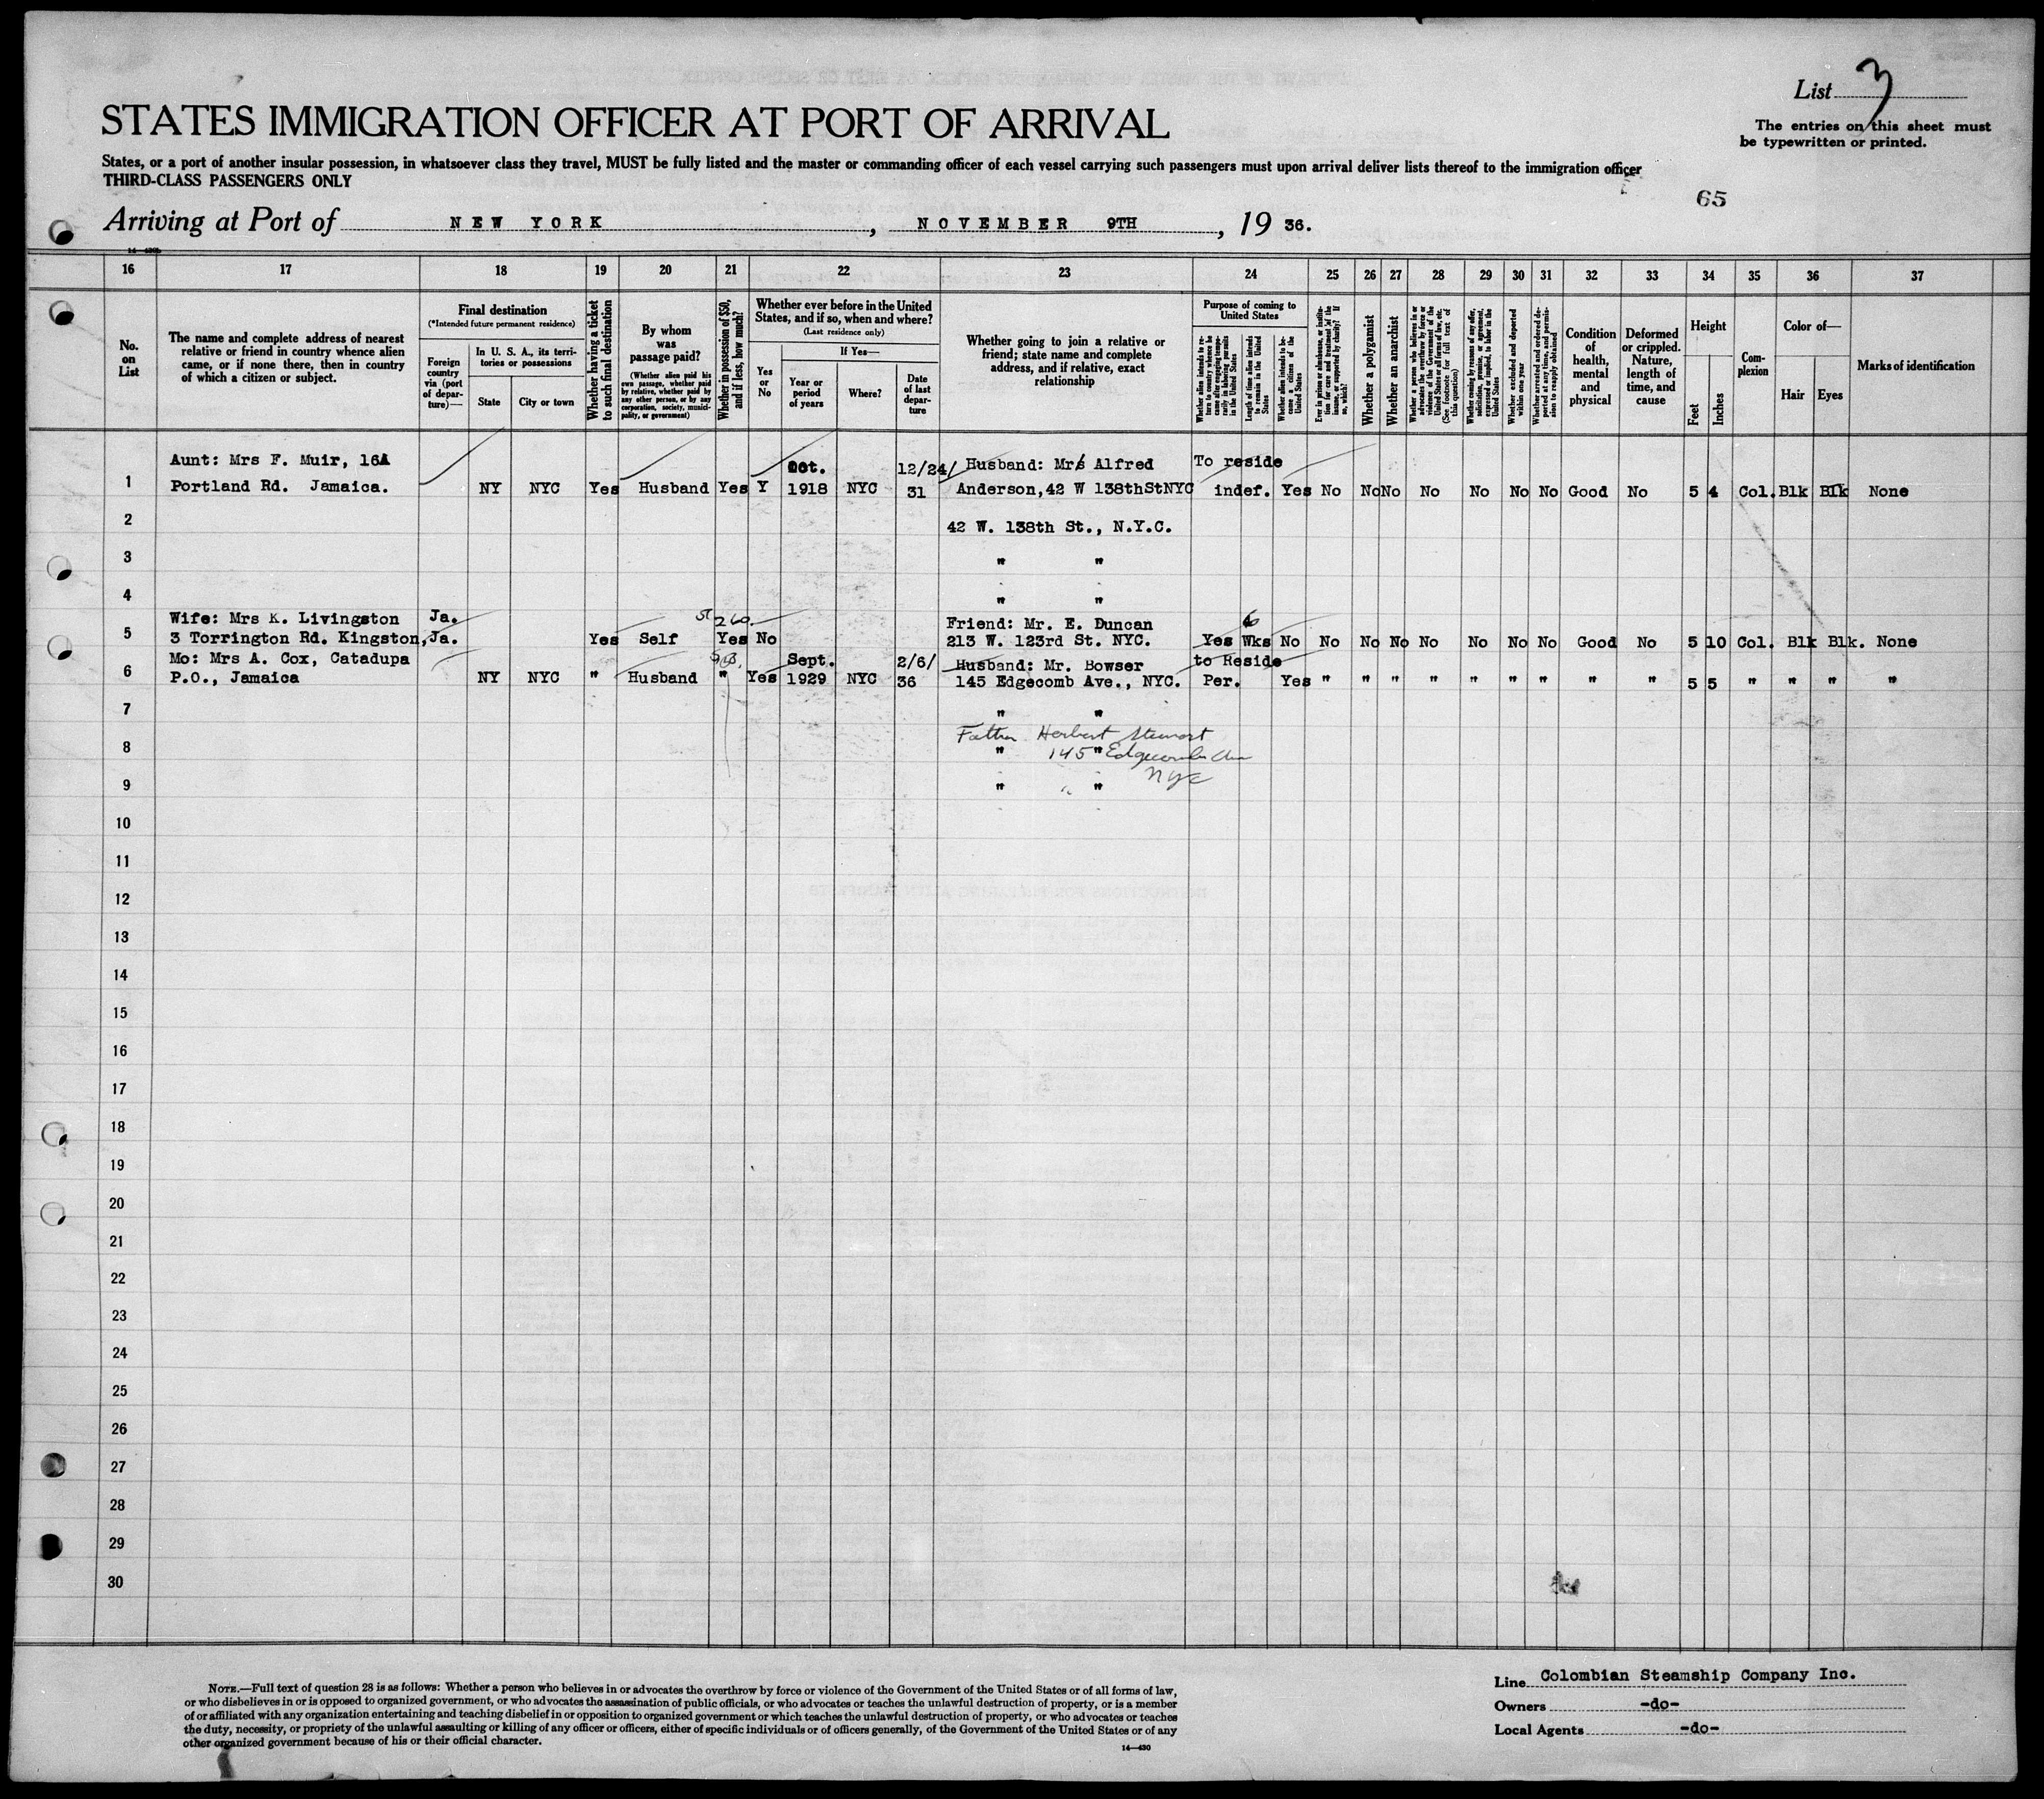 List 3
The entries on this sheet must
be typewritten or printed.
STATES IMMIGRATION OFFICER AT PORT OF ARRIVAL
States, or a port of another insular possession, in whatsoever class they travel, MUST be fully listed and the master or commanding officer of each vessel carrying such passengers must upon arrival deliver lists thereof to the immigration officer
THIRD-CLASS PASSENGERS ONLY
65
Arriving at Port of NEW YORK, NOVEMBER 9TH, 19 36.
16 17 18 19 20 21 22 23 24 25 26 27 28 29 30 31 32 33 34 35 36 37
No. on List
The name and complete address of nearest relative or friend in country whence alien came, or if none there, then in country of which a citizen or subject.
Final destination
(*Intended future permanent residence)
Foreign country via (port of departure)—
In U. S. A., its territories or possessions
State
City or town
Whether having a ticket to such final destination
By whom was passage paid?
(Whether alien paid his own passage, whether paid by relative, whether paid by any other person, or by any corporation, society, municipality, or government)
Whether in possession of $50, and if less, how much?
Whether ever before in the United States, and if so, when and where?
(Last residence only)
Yes or No
If Yes—
Year or period of years
Where?
Date of last departure
Whether going to join a relative or friend; state name and complete address, and if relative, exact relationship
Purpose of coming to United States
Whether alien intends to return to country whence he came after engaging temporarily in laboring pursuits in the United States
Length of time alien intends to remain in the United States
Whether alien intends to become a citizen of the United States
Ever in prison or almshouse, or institution for care and treatment of the insane, or supported by charity? If so, which?
Whether a polygamist
Whether an anarchist
Whether a person who believes in or advocates the overthrow by force or violence of the Government of the United States or all forms of law, etc. (See footnote for full text of this question)
Whether coming by reason of any offer, solicitation, promise, or agreement, expressed or implied, to labor in the United States
Whether excluded and deported within one year
Whether arrested and ordered deported at any time, and permission to reapply obtained
Condition of health, mental and physical
Deformed or crippled. Nature, length of time, and cause
Height
Feet
Inches
Complexion
Color of—
Hair
Eyes
Marks of identification
Aunt: Mrs F. Muir, 16A Oct. 12/24/ Husband: Mrs Alfred To reside
1 Portland Rd. Jamaica. NY NYC Yes Husband Yes Y 1918 NYC 31 Anderson,42 W 138thStNYC indef. Yes No No No No No No No Good No 5 4 Col. Blk Blk None
2 42 W. 138th St., N.Y.C.
3 " "
4 " "
Wife: Mrs K. Livingston Ja. 260 Friend: Mr. E. Duncan 6
5 3 Torrington Rd. Kingston, Ja. Yes Self Yes No 213 W. 123rd St. NYC. Yes Wks No No No No No No No No Good No 5 10 Col. Blk Blk. None
Mo: Mrs A. Cox, Catadupa Sept. 2/6/ Husband: Mr. Bowser to Reside
6 P.O., Jamaica NY NYC " Husband " Yes 1929 NYC 36 145 Edgecomb Ave., NYC. Per. Yes " " " " " " " " " 5 5 " " " "
7 " "
Father Herbert Stewart
8 " 145 " Edgecombe Ave
NYC
9 " "
10
11
12
13
14
15
16
17
18
19
20
21
22
23
24
25
26
27
28
29
30
NOTE.—Full text of question 28 is as follows: Whether a person who believes in or advocates the overthrow by force or violence of the Government of the United States or of all forms of law,
or who disbelieves in or is opposed to organized government, or who advocates the assassination of public officials, or who advocates or teaches the unlawful destruction of property, or is a member
of or affiliated with any organization entertaining and teaching disbelief in or opposition to organized government or which teaches the unlawful destruction of property, or who advocates or teaches
the duty, necessity, or propriety of the unlawful assaulting or killing of any officer or officers, either of specific individuals or of officers generally, of the Government of the United States or of any
other organized government because of his or their official character.
14—430
Line Colombian Steamship Company Inc.
Owners -do-
Local Agents -do-